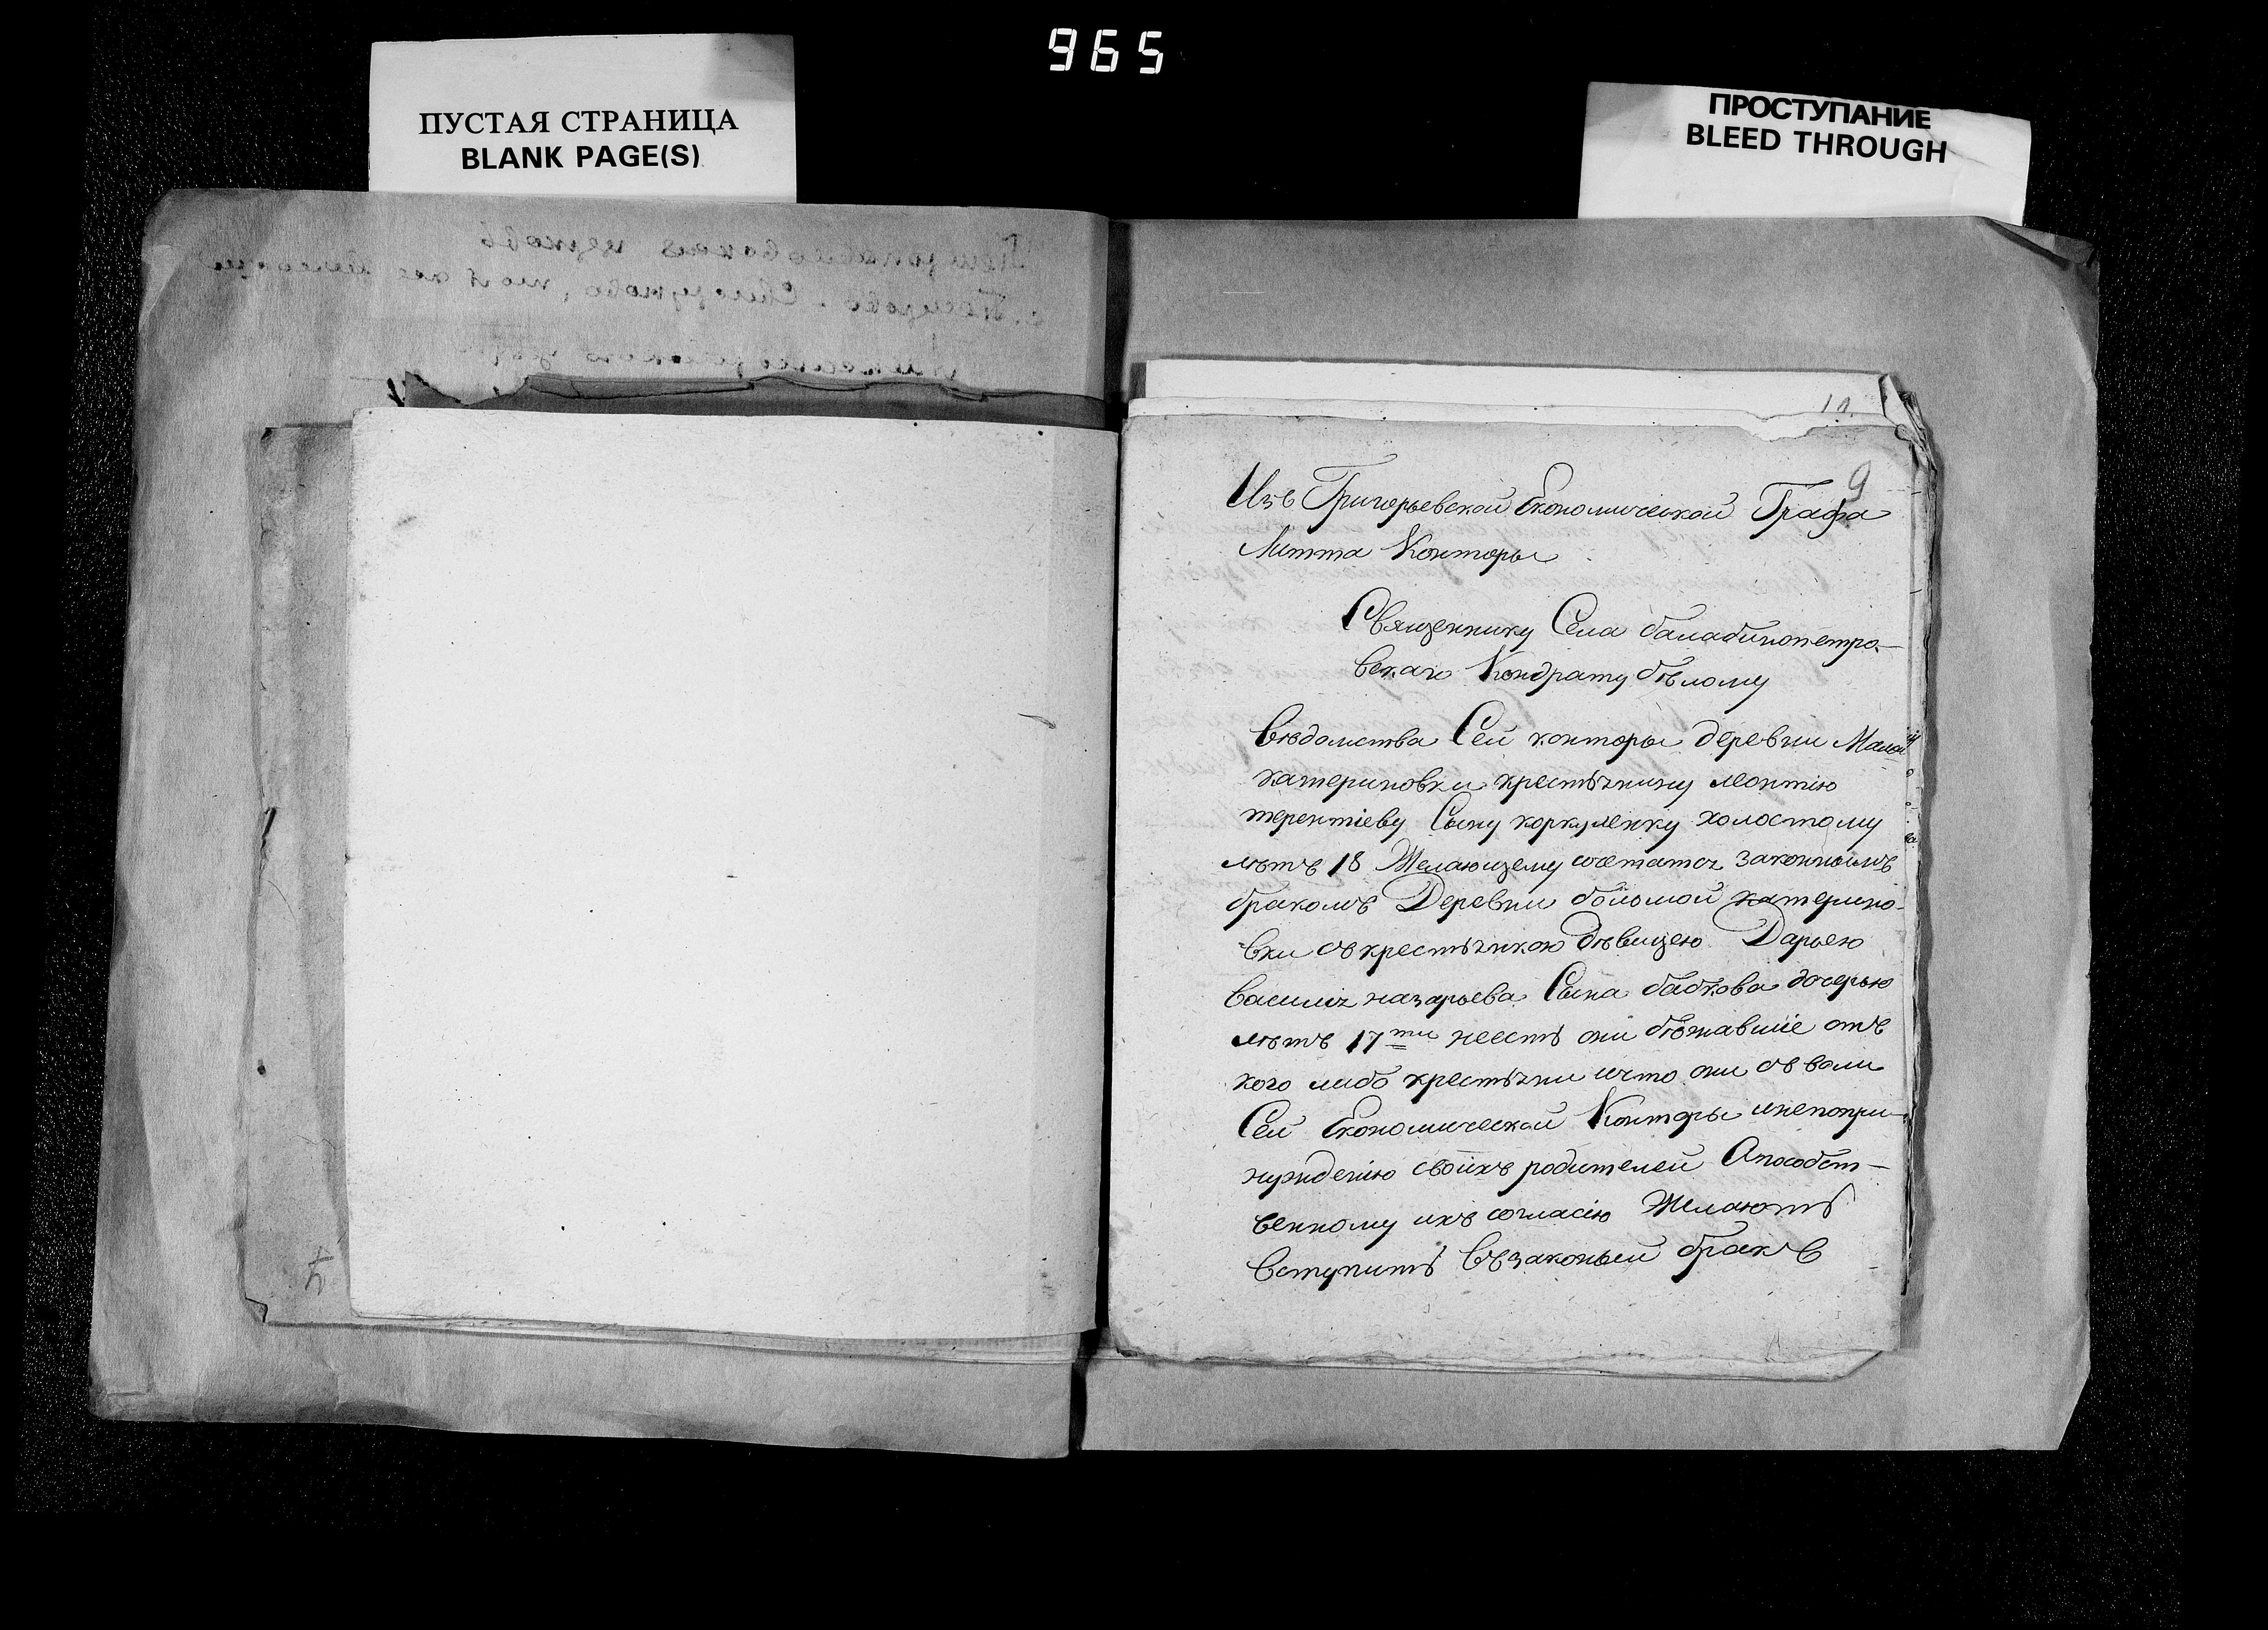 965
ПУСТАЯ СТРАНИЦА
BLANK PAGE(S)
ПРОСТУПАНИЕ
BLEED THROUGH
9
Изъ Григорьевской Економической Графа
Литта Конторы
Священнику Села балабинопетро-
вскаго Кондрату бѣлому
Вѣдомства Сей конторы деревни Малой
катериновки крестьянину леонтию
терентіеву Сыну коркуленку холостому
лѣтъ 18 Желающему сочетатся законнымъ
бракомъ Деревни большой катерино-
вки съ крестьянкою дѣвицею Дарьею
василия назарьева Сына бабкова дочерью
лѣтъ 17ти неесть они бѣжавшіе отъ
кого либо крестьяни ичто они съ воли
Сей Економической Конторы инепопри-
нуждению своихъ родителей Апособст-
венному ихъ согласію Желаютъ
вступить взаконый бракъ